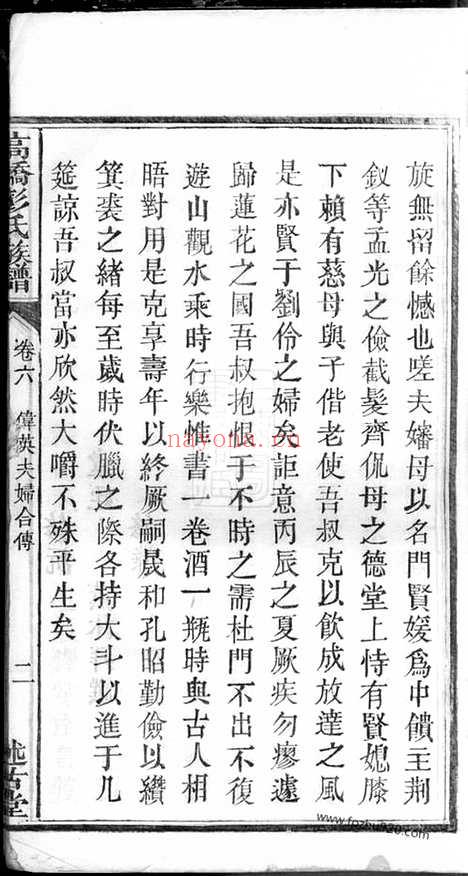 旋無留餘憾也嗟夫嬸母以名門賢媛爲中饋主荆
釵等孟光之儉截髮齊侃母之德堂上恃有賢媳膝
下賴有慈母與子偕老使吾叔克以飲成放達之風
是亦賢于劉伶之婦矣詎意丙辰之夏厥疾勿瘳遽
歸蓮花之國吾叔抱恨于不時之需杜門不出不復
遊山觀水乘時行樂惟書一卷酒一瓶時與古人相
晤對用是克享壽年以終厥嗣晟和孔昭勤儉以纘
箕裘之緒每至歲時伏臘之際各持大斗以進于几
筵諒吾叔當亦欣然大嚼不殊平生矣
高橋彭氏族譜
卷六 偉英夫婦合傳
二
述古堂
navona.com
www.fozhu920.com